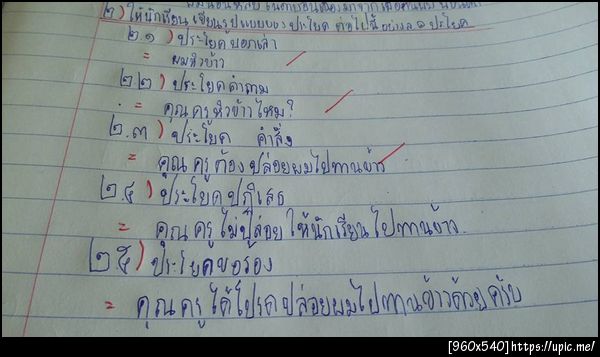 ๒) ให้นักเรียน เขียนรูปแบบของประโยค ต่อไปนี้อย่างละ ประโยค
๒.๑) ประโยค บอกเล่า
= ผมหิวข้าว
๒.๒) ประโยคคำถาม
= คุณครูหิวข้าวไหม?
๒.๓) ประโยค คำสั่ง
= คุณครูต้องปล่อยผมไปทานข้าว
๒.๔) ประโยคปฏิเสธ
= คุณครูไม่ปล่อยให้นักเรียนไปทานข้าว.
๒.๕) ประโยคขอร้อง
= คุณครูได้โปรดปล่อยผมไปทานข้าวด้วยครับ
[960x540] https://upic.me/